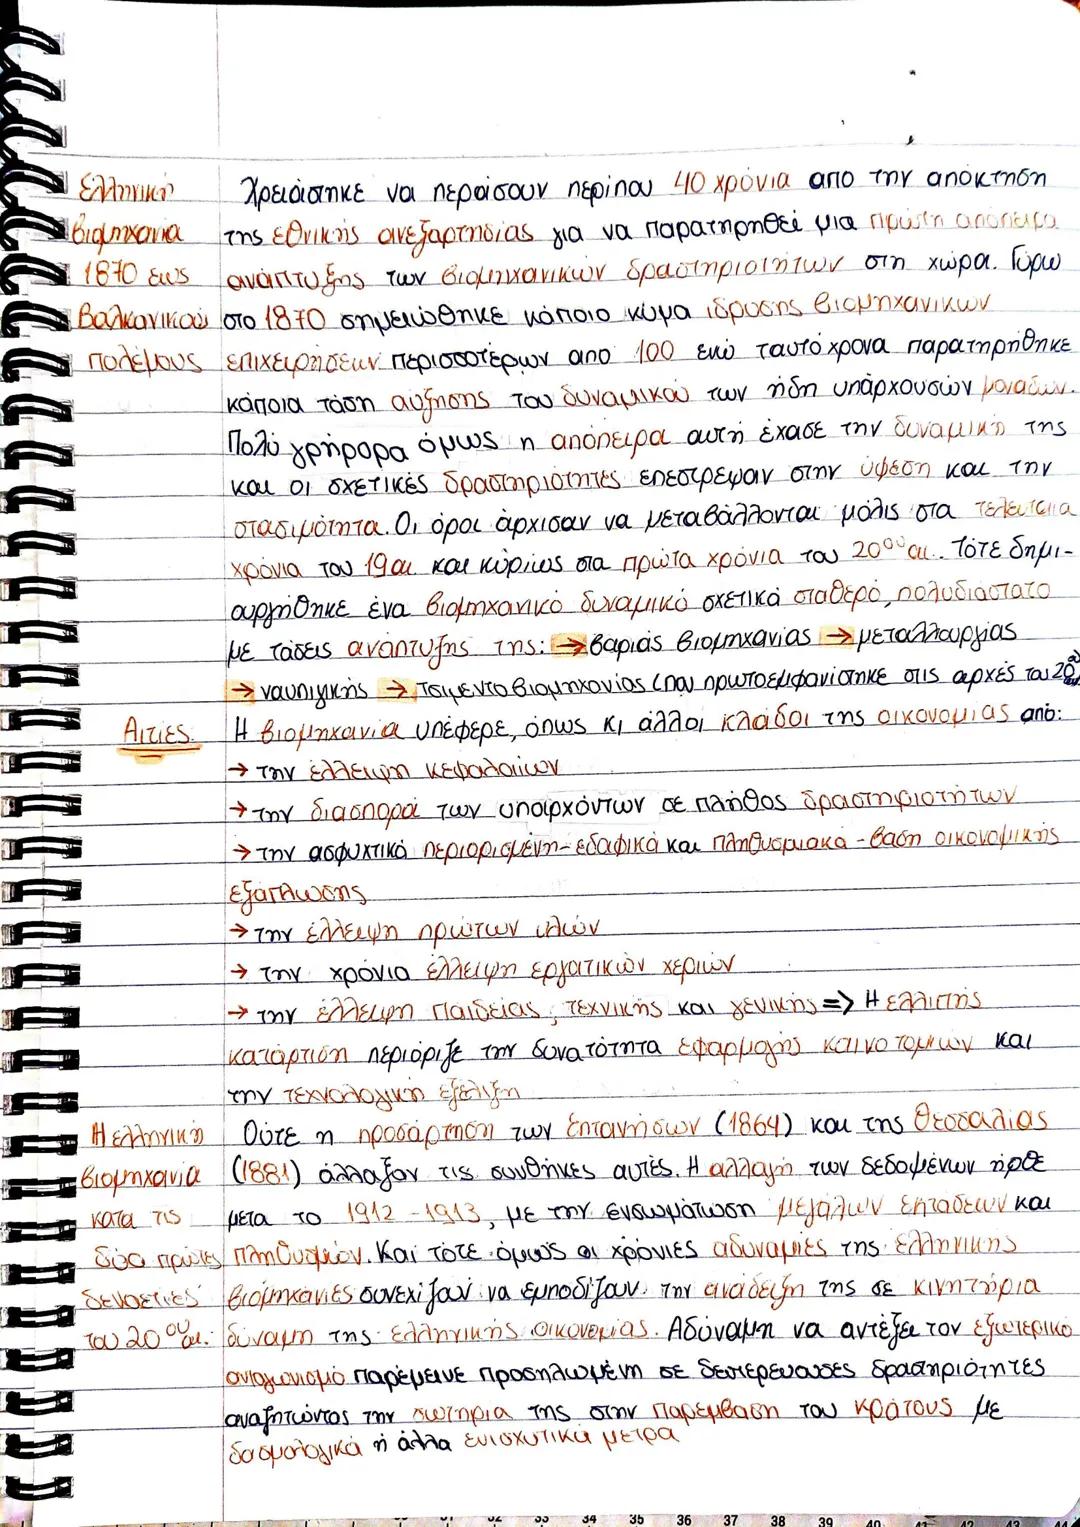 Ελληνική Χρειάστηκε να περάσουν περίπου 40 χρόνια από την απόκτηση
βιομηχανία της εθνικής ανεξαρτησίας για να παρατηρηθεί μια πρώτη απόπειρα
1870 έως ανάπτυξης των βιομηχανικών δραστηριοτήτων στη χώρα. Γύρω
Βαλκανικούς στο 1870 σημειώθηκε κάποιο κύμα ίδρυσης βιομηχανικών
πολέμους επιχειρήσεων περισσοτέρων από 100 ενώ ταυτόχρονα παρατηρήθηκε
κάποια τάση αύξησης του δυναμικού των ήδη υπάρχουσών μονάδων.
Πολύ γρήγορα όμως η απόπειρα αυτή έχασε την δυναμική της
και οι σχετικές δραστηριότητες επέστρεψαν στην ύφεση και την
στασιμότητα. Οι όροι άρχισαν να μεταβάλλονται μόλις στα τελευταία
χρόνια του 19ου και κυρίως στα πρώτα χρόνια του 20ου αι. Τότε δημι-
ουργήθηκε ένα βιομηχανικό δυναμικό σχετικά σταθερό, πολυδιάστατο
με τάσεις ανάπτυξης της: → βαριάς βιομηχανίας → μεταλλουργίας
→ ναυπηγικής → τσιμεντοβιομηχανίας (που πρωτοεμφανίστηκε στις αρχές του 20ου
Αιτίες: Η βιομηχανία υπέφερε, όπως κι άλλοι κλάδοι της οικονομίας από:
→ την έλλειψη κεφαλαίων
→ την διασπορά των υπαρχόντων σε πλήθος δραστηριοτήτων
→ την ασφυκτικά περιορισμένη - εδαφικά και πληθυσμιακά - βάση οικονομικής
εξάπλωσης
→ την έλλειψη πρώτων υλών
→ την χρόνια έλλειψη εργατικών χεριών
→ την έλλειψη παιδείας, τεχνικής και γενικής => Η ελλιπής
κατάρτιση περιόριζε την δυνατότητα εφαρμογής καινοτομιών και
την τεχνολογική εξέλιξη
Η ελληνική Ούτε η προσάρτηση των Επτανήσων (1864) και της Θεσσαλίας
βιομηχανία (1881) άλλαξαν τις συνθήκες αυτές. Η αλλαγή των δεδομένων ήρθε
κατά τις μετά το 1912 - 1913, με την ενσωμάτωση μεγάλων εκτάσεων και
δύο πρώτες πληθυσμών. Και τότε όμως οι χρόνιες αδυναμίες της ελληνικής
δεκαετίες βιομηχανίες συνεχίζαν να εμποδίζουν την ανάδειξη της σε κινητήρια
του 20ου αι.: δύναμη της ελληνικής οικονομίας. Αδύναμη να αντέξει τον εξωτερικό
ανταγωνισμό παρέμεινε προσηλωμένη σε δευτερεύουσες δραστηριότητες
αναζητώντας την σωτηρία της στην παρέμβαση του κράτους με
δασμολογικά ή άλλα ενισχυτικά μέτρα
32 33 34 35 36 37 38 39 40 41 42 43 44